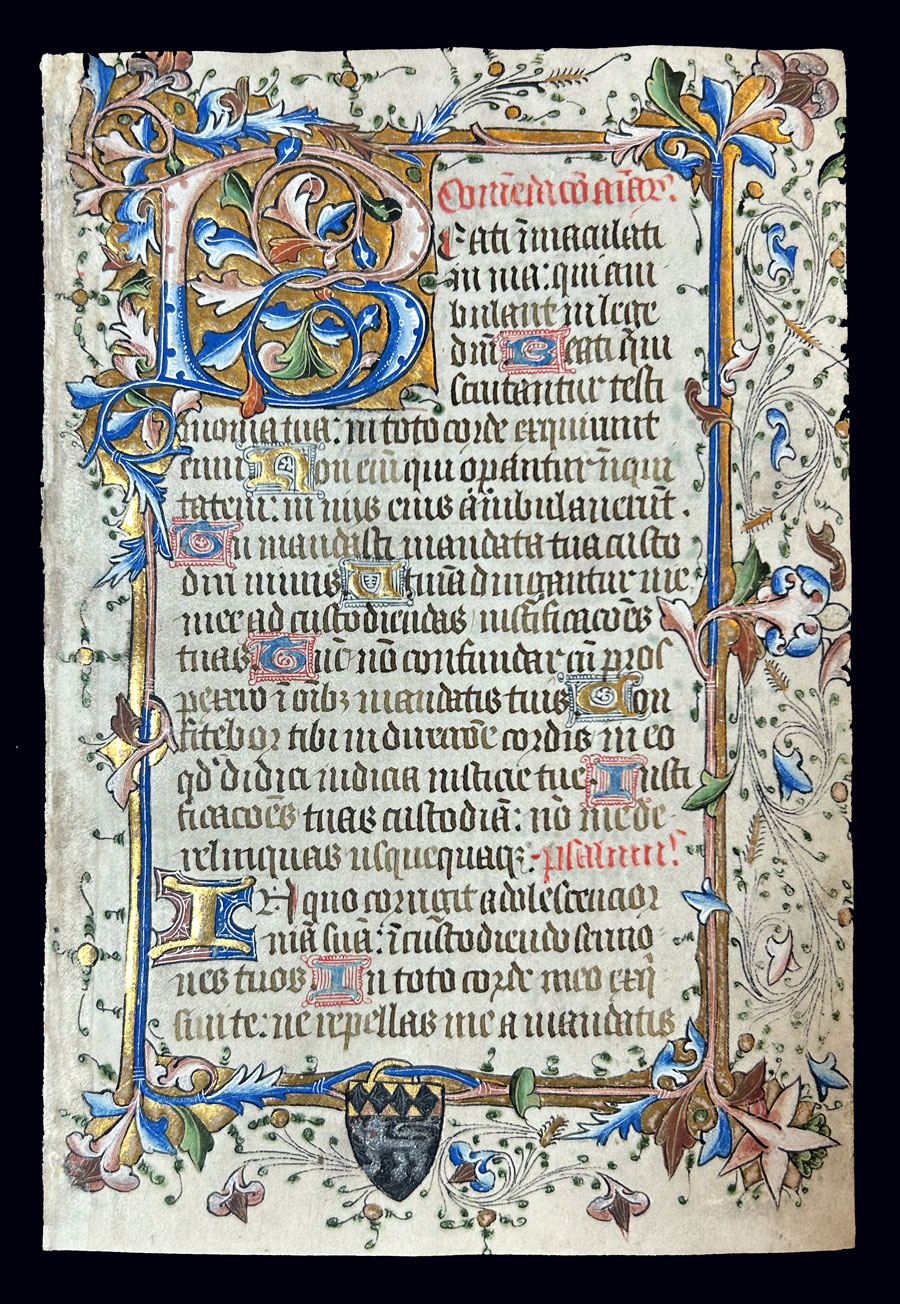 Com̄edac̄o ai̅ar̅.
Beati i̅maculati
in uia: qui am
bulant in lege
dn̄i Beati qui
scrutantur testi
monia tua: in toto corde exquirunt
eum Non eni̅ qui operantur i̅iqui
tatem: in uijs eius ambulauerūt.
Tu mandasti mandata tua custo
diri nimis Utinā dirigantur uie
mee ad custodiendas iustificac̄oēs
tuas Tūc nō confundar cū pros
pexero i̅ oībꝫ mandatis tuis Con
fitebor tibi in direcc̄oe cordis in eo
qd̓ didici iudicia iusticie tue Iusti
ficac̄oēs tuas custodiā: nō me de
relinquas usquequaqꝫ psalmus
In quo corrigit adolescencior
uiā suā: i̅ custodiendo sermo
nes tuos In toto corde meo exq̅
siui te: ne repellas me a mandatis